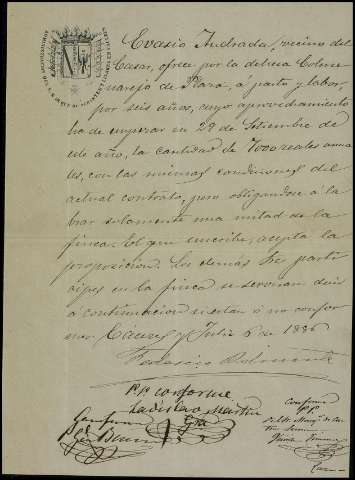 Evasio Andrada, vecino del
Casar, ofrece por la dehesa Colme-
narejo de Para, á pasto y labor,
por seis años, cuyo aprovechamiento
ha de empezar en 29 de Setiembre de
este año, la cantidad de 7000 reales anua-
les, con las mismas condiciones del
actual contrato, pero obligandose á la-
brar solamente una mitad de la
finca. El que suscribe, acepta la
proposicion. Los demás partí
cipes en la finca se serviran decir
a continuacion si estan ó no confor
mes. Cáceres y Julio 6 de 1886
Federico Belmonte
P.P. conforme
Ladislao Martin
Gra
Conforme
Conforme
P.P.